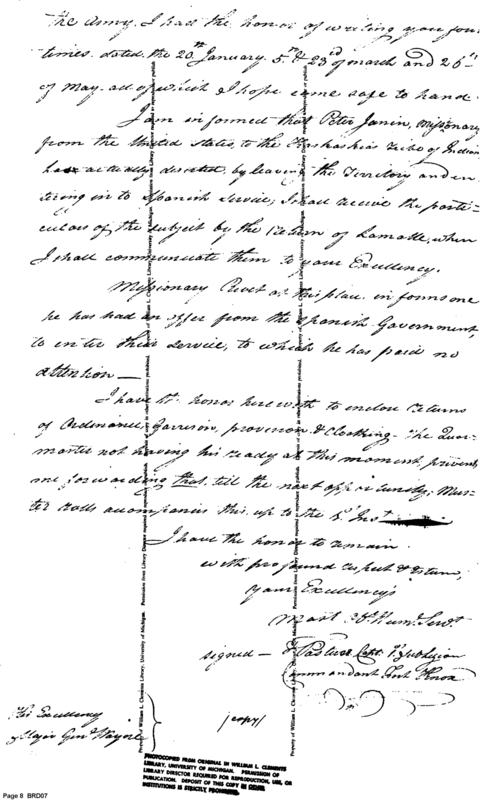 the Army. I had the honor of writing you four
times. dated the 20th January 5th & 23rd of march and 26th
of May. all of which I hope came safe to hand.
I am informed that Peter Janin, Missionary
from the United States, to the Kaskaskias tribe of Indian
has actually deserted, by leaving the Territory and en
tering in to Spanish service; I shall receive the parti=
culars of the subject by the return of Lamotte, when
I shall communicate them to your Excellency.
Missionary Rivet at this place, informs me
he has had an offer from the Spanish Government,
to enter their service, to which he has paid no
attention —
I have the honor herewith to enclose returns
of Ordinance, Garrison, provision & Cloathing - The Quar
master not having his ready at this moment, prevents
me forwarding that till the next opportunity; Mus=
ter rolls accompanies this, up to the 1st Inst
I have the honor to remain
with profound respect & esteem,
your Excellency's
most Ob. Humb. Servt.
signed — T Pasteur Capt. 1st Sub Legion
Commandant Fort Knox
His Excellency
Major Genl. Wayne
/copy/
Property of William L. Clements Library, University of Michigan. Permission from Library Director required for reproduction, use, or publication. Deposit of this copy in other institutions is strictly prohibited.
PHOTOCOPIED FROM ORIGINAL IN WILLIAM L. CLEMENTS
LIBRARY, UNIVERSITY OF MICHIGAN. PERMISSION OF
LIBRARY DIRECTOR REQUIRED FOR REPRODUCTION, USE, OR
PUBLICATION. DEPOSIT OF THIS COPY IN OTHER
INSTITUTIONS IS STRICTLY PROHIBITED.
Page 8 BRD07